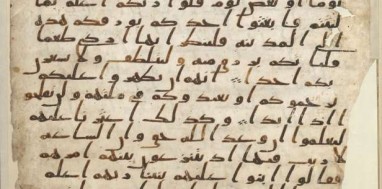 يوما او بعض يوم قلوا ربكم اعلم بما
لبثتم فابعثوا احدكم بورقكم هذه
الى المدينه فلينظر ايها ازكى طعما
فلياتكم برزق منه وليتلطف ولا يشعرن
بكم احدا انهم ان يظهروا عليكم
يرجموكم او يعيدوكم في ملتهم ولن تفلحوا
اذا ابدا وكذلك اعثرنا عليهم
ليعلموا ان وعد الله حق وان الساعه
لا ريب فيها اذ يتنزعون بينهم امرهم
فقالوا ابنوا عليهم بنينا ربهم اعلم